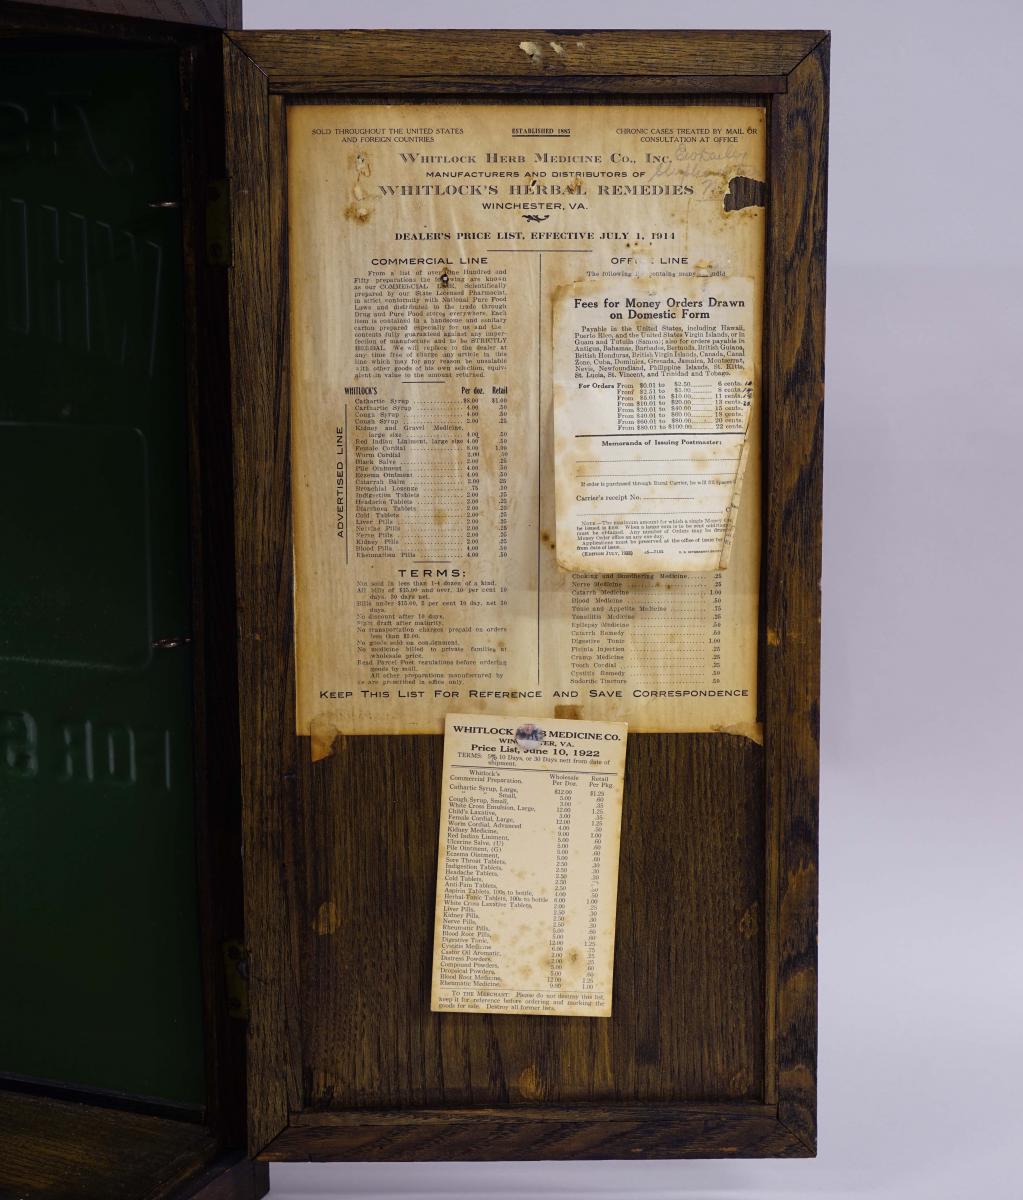 SOLD THROUGHOUT THE UNITED STATES
AND FOREIGN COUNTRIES
ESTABLISHED 1885
CHRONIC CASES TREATED BY MAIL OR
CONSULTATION AT OFFICE
WHITLOCK HERB MEDICINE CO., INC.
MANUFACTURERS AND DISTRIBUTORS OF
WHITLOCK'S HERBAL REMEDIES
WINCHESTER, VA.
DEALER'S PRICE LIST, EFFECTIVE JULY 1, 1914
COMMERCIAL LINE
From a list of over One Hundred and
Fifty preparations the following are known
as our COMMERCIAL LINE. Scientifically
prepared by our State Licensed Pharmacist,
in strict conformity with National Pure Food
Laws and distributed to the trade through
Drug and Pure Food stores everywhere. Each
item is contained in a handsome and sanitary
carton prepared especially for us and the
contents fully guaranteed against any imper-
fection of manufacture and to be STRICTLY
HERBAL. We will replace to the dealer at
any time free of charge any article in this
line which may for any reason be unsalable
with other goods of his own selection, equiv-
alent in value to the amount returned.
WHITLOCK'S Per doz. Retail
ADVERTISED LINE
Cathartic Syrup $8.00 $1.00
Carthartic Syrup 4.00 .50
Cough Syrup 4.00 .50
Cough Syrup 2.00 .25
Kidney and Gravel Medicine,
large size 4.00 .50
Red Indian Liniment, large size 4.00 .50
Female Cordial 8.00 1.00
Worm Cordial 2.00 .50
Black Salve 2.00 .25
Pile Ointment 4.00 .50
Eczema Ointment 4.00 .50
Catarrh Balm 2.00 .25
Bronchial Lozenge .75 .10
Indigestion Tablets 2.00 .25
Headache Tablets 2.00 .25
Diarrhoea Tablets 2.00 .25
Cold Tablets 2.00 .25
Liver Pills 2.00 .25
Nervine Pills 2.00 .25
Nerve Pills 2.00 .25
Kidney Pills 2.00 .25
Blood Pills 4.00 .50
Rheumatism Pills 4.00 .50
TERMS:
Not sold in less than 1-4 dozen of a kind.
All bills of $15.00 and over, 10 per cent 10
days, 30 days net.
Bills under $15.00, 2 per cent 10 day, net 30
days.
No discount after 10 days.
Sight draft after maturity.
No transportation charges prepaid on orders
less than $5.00.
No goods sold on consignment.
No medicine billed to private families at
wholesale price.
Read Parcel Post regulations before ordering
goods by mail.
All other preparations manufactured by
us are prescribed in office only.
OFFI LINE
The following containing many
Fees for Money Orders Drawn
on Domestic Form
Payable in the United States, including Hawaii,
Puerto Rico, and the United States Virgin Islands, or in
Guam and Tutuila (Samoa); also for orders payable in
Antigua, Bahamas, Barbados, Bermuda, British Guiana,
British Honduras, British Virgin Islands, Canada, Canal
Zone, Cuba, Dominica, Grenada, Jamaica, Montserrat,
Nevis, Newfoundland, Philippine Islands, St. Kitts,
St. Lucia, St. Vincent, and Trinidad and Tobago.
For Orders From $0.01 to $2.50 6 cents.
From $2.51 to $5.00 8 cents.
From $5.01 to $10.00 11 cents.
From $10.01 to $20.00 13 cents.
From $20.01 to $40.00 15 cents.
From $40.01 to $60.00 18 cents.
From $60.01 to $80.00 20 cents.
From $80.01 to $100.00 22 cents.
Memoranda of Issuing Postmaster:
If order is purchased through Rural Carrier, he will fill spaces
Carrier's receipt No.
NOTE—The maximum amount for which a single Money
be issued is $100. When a larger sum is to be sent additional
must be obtained. Any number of Orders may be drawn
Money Order office on any one day.
Applications must be preserved at the office of issue for
from date of issue.
(EDITION JULY, )
Choking and Smothering Medicine .25
Nerve Medicine .25
Catarrh Medicine 1.00
Blood Medicine .50
Tonic and Appetite Medicine .75
Tonsilitis Medicine .25
Epilepsy Medicine .50
Catarrh Remedy .50
Digestive Tonic 1.00
Fistula Injection .25
Cramp Medicine .25
Tooth Cordial .25
Cystitis Remedy .50
Sudorific Tincture .50
KEEP THIS LIST FOR REFERENCE AND SAVE CORRESPONDENCE
WHITLOCK B MEDICINE CO.
WIN TER, VA.
Price List, June 10, 1922
TERMS: 10 Days, or 30 Days nett from date of
shipment.
Whitlock's Wholesale Retail
Commercial Preparation. Per Doz. Per Pkg.
Cathartic Syrup, Large, $12.00 $1.25
" " Small, 5.00 .60
Cough Syrup, Small, 3.00 .35
White Cross Emulsion, Large, 12.00 1.25
Child's Laxative, 3.00 .35
Female Cordial, Large, 12.00 1.25
Worm Cordial, Advanced 4.00 .50
Kidney Medicine, 9.00 1.00
Red Indian Liniment, 5.00 .60
Ulcerine Salve, (U) 5.00 .60
Pile Ointment, (G) 5.00 .60
Eczema Ointment, 5.00 .60
Sore Throat Tablets, 2.50 .30
Indigestion Tablets, 2.50 .30
Headache Tablets, 2.50 .30
Cold Tablets, 2.50
Anti-Pain Tablets, 2.50
Aspirin Tablets, 100s to bottle, 4.00 .50
Herbal-Tonic Tablets, 100s to bottle 6.00 1.00
White Cross Laxative Tablets, 2.00 .25
Liver Pills, 2.50 .30
Kidney Pills, 2.50 .30
Nerve Pills, 2.50 .30
Rheumatic Pills, 5.00 .60
Blood Root Pills, 5.00 .60
Digestive Tonic, 12.00 1.25
Cystitis Medicine 6.00 .75
Castor Oil Aromatic, 2.00 .25
Distress Powders, 2.00 .25
Compound Powders, 5.00 .60
Dropsical Powders, 5.00 .60
Blood Root Medicine, 12.00 1.25
Rheumatic Medicine, 9.00 1.00
TO THE MERCHANT: Please do not destroy this list,
keep it for reference before ordering and marking the
goods for sale. Destroy all former lists.